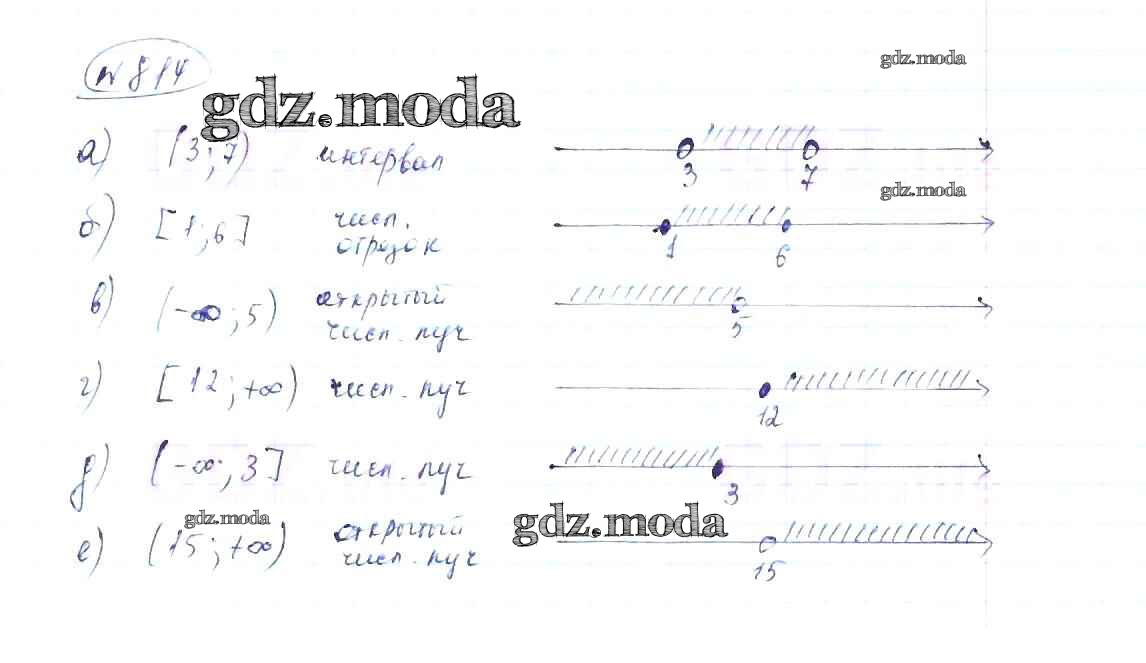 № 814
gdz.moda
gdz.moda
а) (3; 7) интервал
3 7
gdz.moda
б) [1; 6] числ. отрезок
1 6
в) (-∞; 5) открытый числ. луч
5
г) [12; +∞) числ. луч
12
д) (-∞; 3] числ. луч
3
gdz.moda
gdz.moda
е) (15; +∞) открытый числ. луч
15